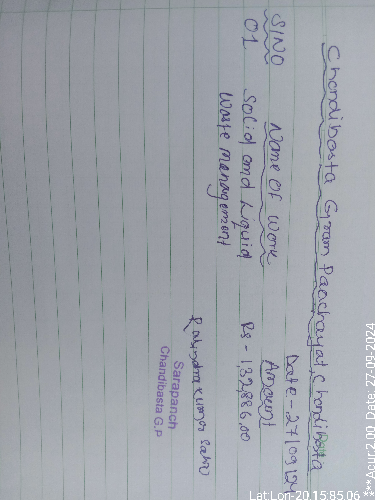 Chandibasta Gram Paachayat, Chandibasta
Date - 27/09/2
SlNO Name OF Work Amount
01 Solid and Liquid Rs - 1,32,886.00
Waste Management
Rabindra Kumar Sahu
Sarapanch
Chandibasta G.P
Lat Lon-20 1585 06 ***Acur 2.00 Date: 27-09-2024